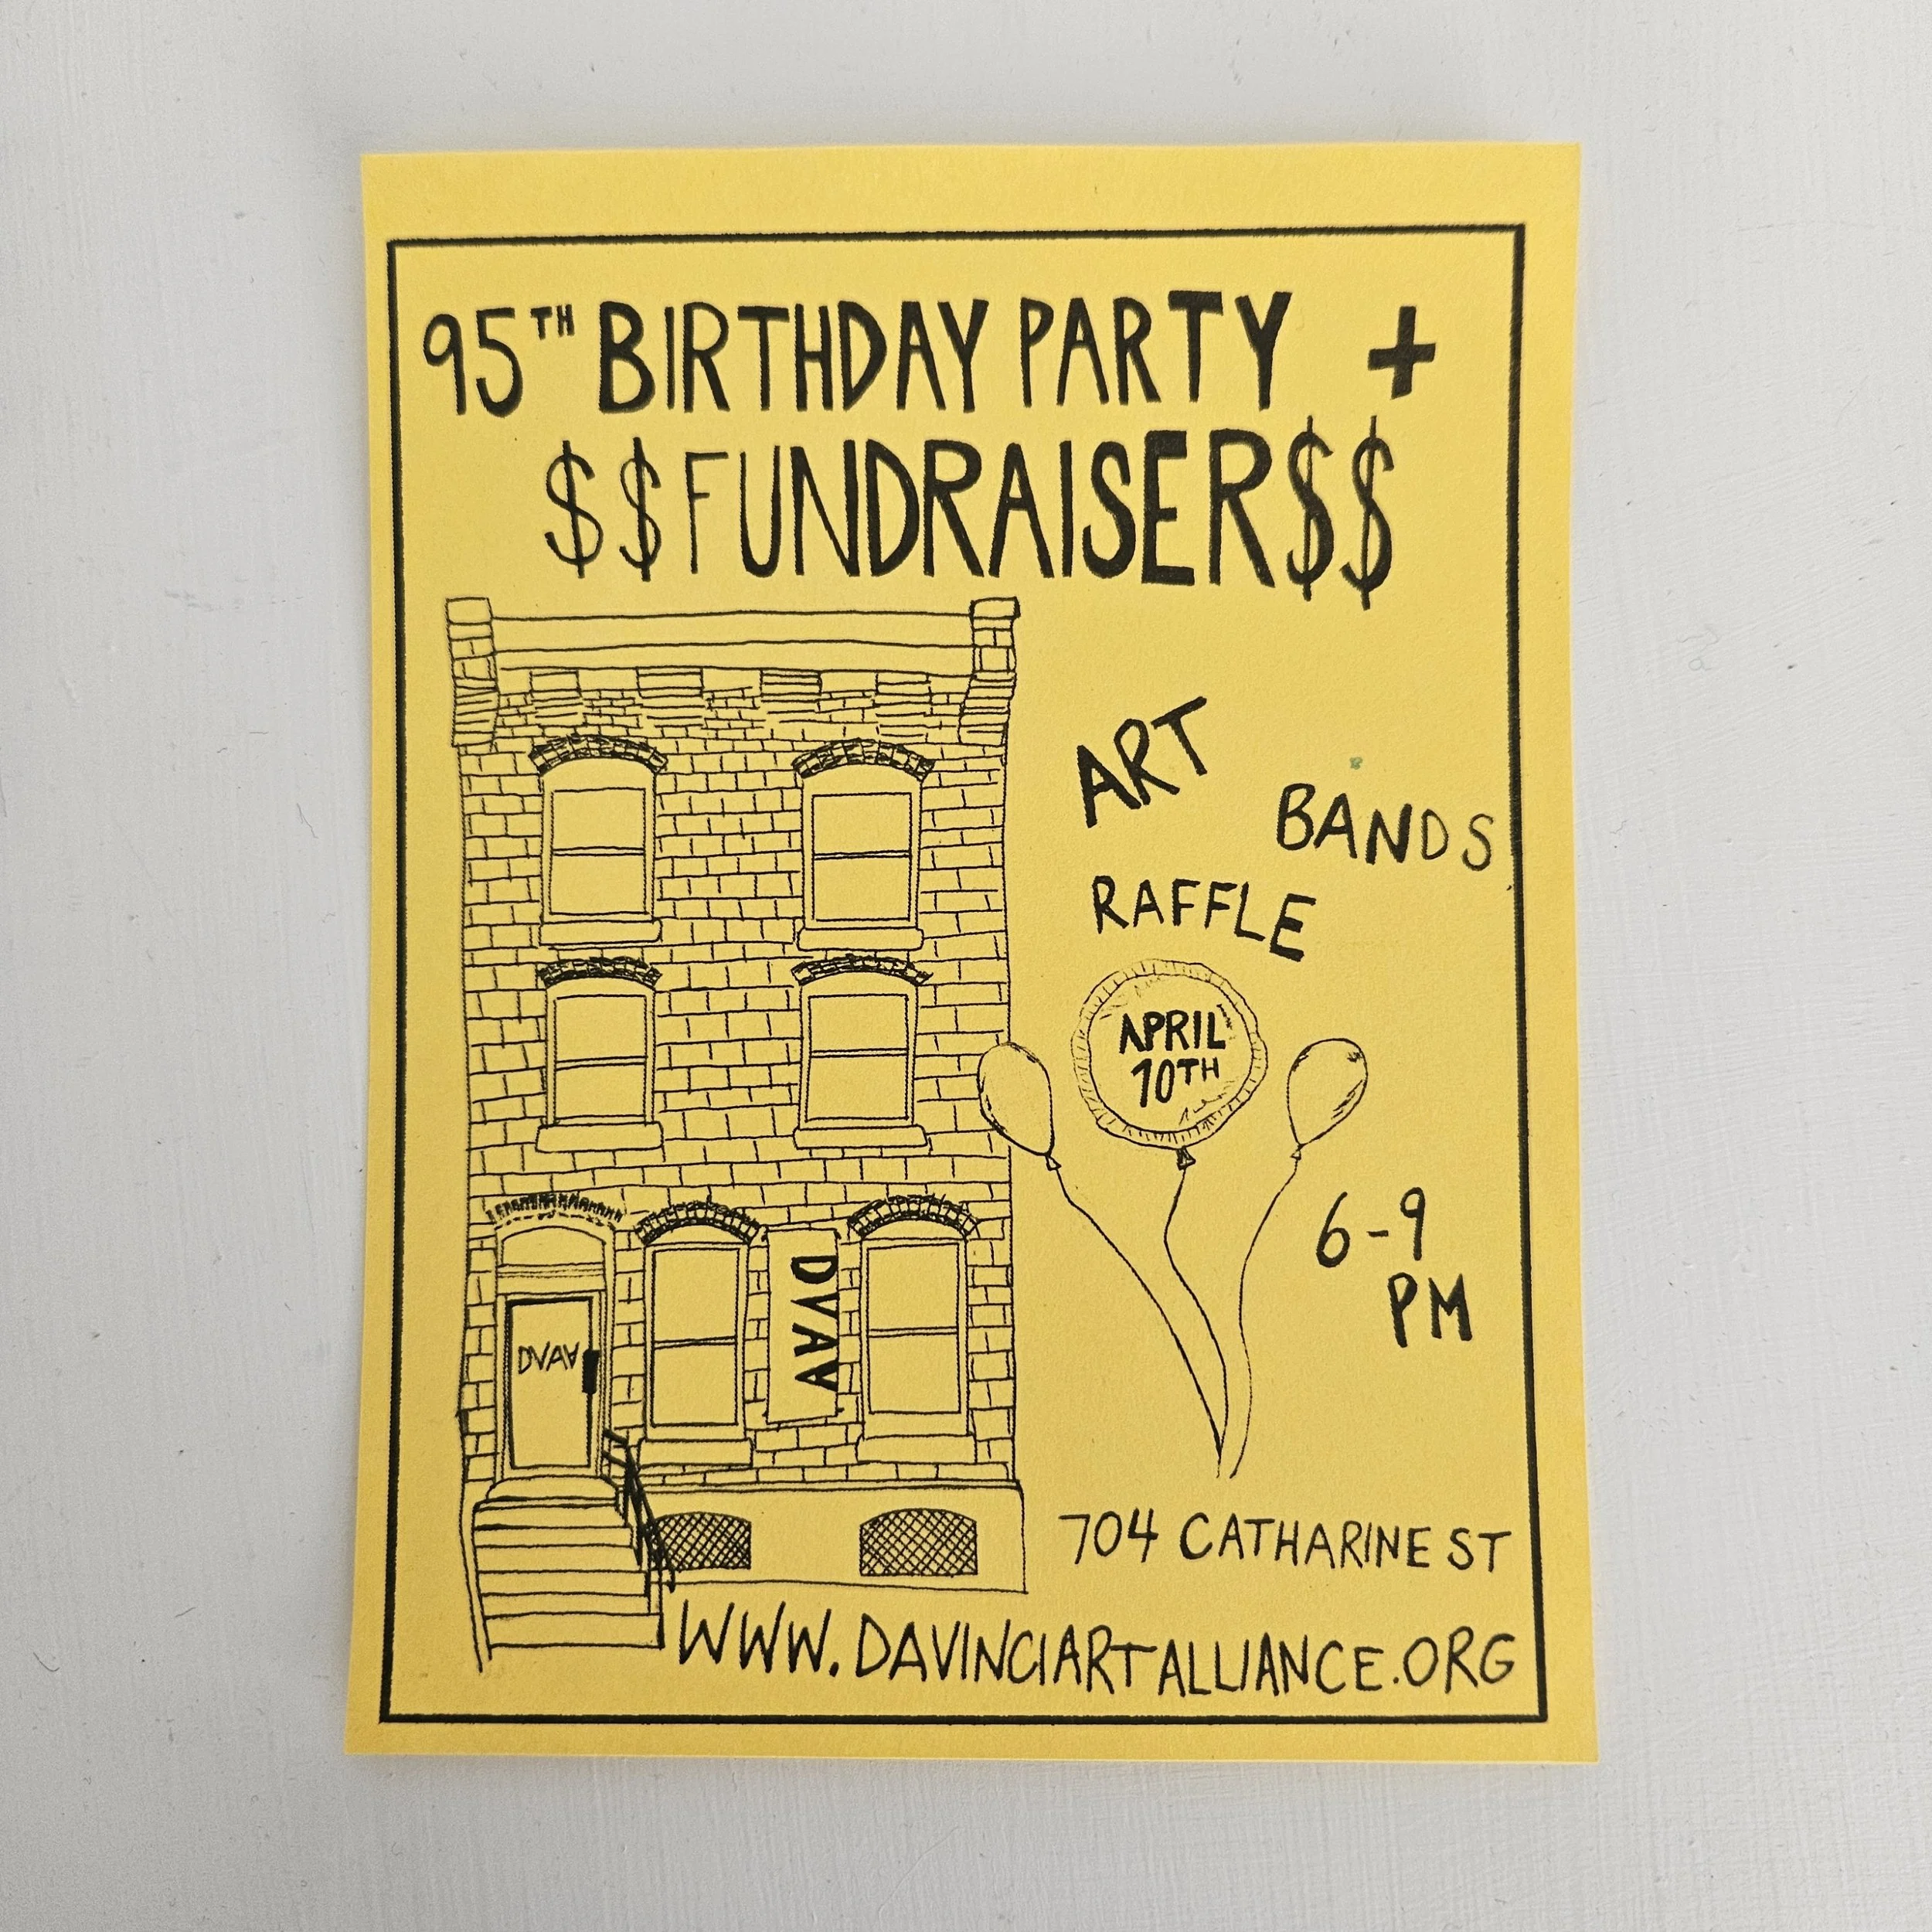 95TH BIRTHDAY PARTY +
$$FUNDRAISER$$
ART
BANDS
RAFFLE
APRIL
10TH
6-9
PM
DVAA
DVAA
704 CATHARINE ST
WWW.DAVINCIARTALLIANCE.ORG